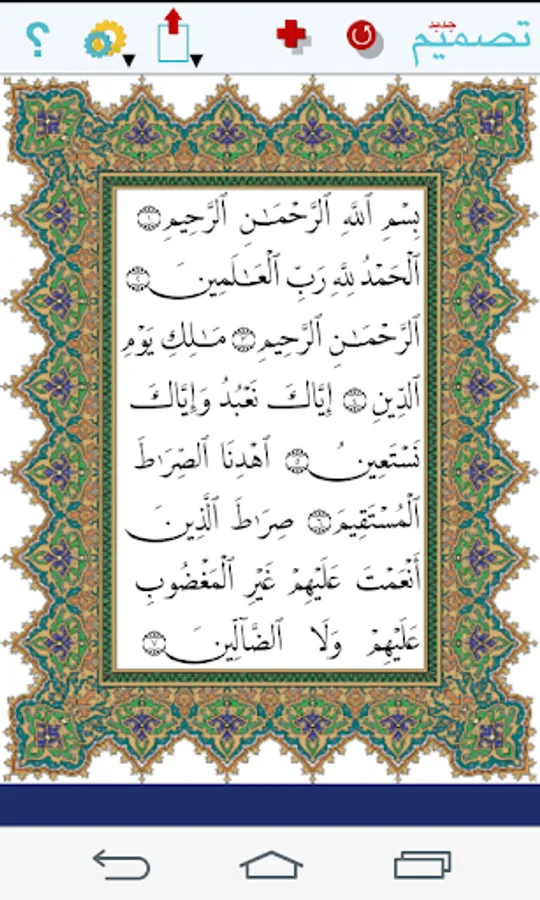 ؟
تصميم
جديد
بِسْمِ ٱللَّهِ ٱلرَّحْمَـٰنِ ٱلرَّحِيمِ ۝١
ٱلْحَمْدُ لِلَّهِ رَبِّ ٱلْعَـٰلَمِينَ ۝٢
ٱلرَّحْمَـٰنِ ٱلرَّحِيمِ ۝٣ مَـٰلِكِ يَوْمِ
ٱلدِّينِ ۝٤ إِيَّاكَ نَعْبُدُ وَإِيَّاكَ
نَسْتَعِينُ ۝٥ ٱهْدِنَا ٱلصِّرَٰطَ
ٱلْمُسْتَقِيمَ ۝٦ صِرَٰطَ ٱلَّذِينَ
أَنْعَمْتَ عَلَيْهِمْ غَيْرِ ٱلْمَغْضُوبِ
عَلَيْهِمْ وَلَا ٱلضَّآلِّينَ ۝٧